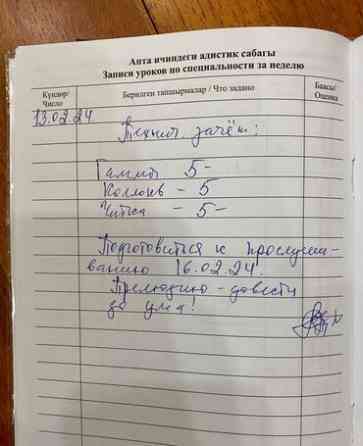 Апта ичиндеги адистик сабагы
Записи уроков по специальности за неделю
Күндөр/
Число
Берилген тапшырмалар / Что задано
Баасы/
Оценка
13.02.24
Технич. зачёт:
Гаммы 5-
Коллокв - 5
Читка - 5-
Подготовиться к прослуши-
ванию 16.02.24.
Прелюдию - довести
до ума!